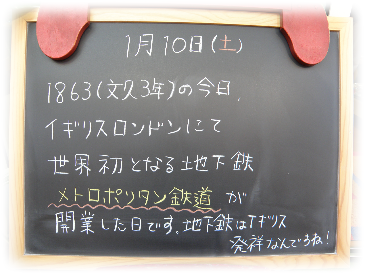 1月10日(土)
1863(文久3年)の今日、
イギリスロンドンにて
世界初となる地下鉄
メトロポリタン鉄道が
開業した日です。地下鉄はイギリス
発祥なんですね!